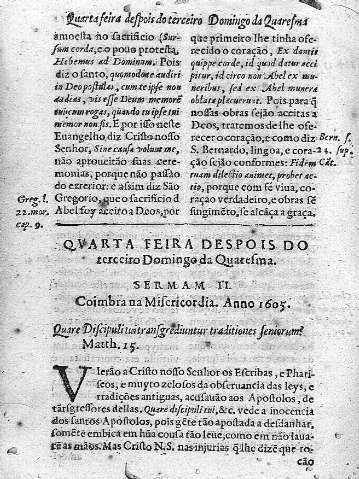 Quarta feira despois do terceiro Domingo da Quaresma
amoesta no sacrificio (Sur-
sum corda, e o pouo protesta,
Habemus ad Dominum. Pois
diz o santo, quomodo te audiri
in Deo postulas, cum te ipse non
audias, vis esse Deum memorẽ
tui cum rogas, quando tu ipse tui
memor non sis. E por isso nelle
Euangelho diz Cristo nosso
Senhor, Sine causa colunt me,
não aproueitão suas ceremo-
monias, porque não passão
do exterior: e assim diz São
Gregorio, que o sacrificio d
Abel foy aceito a Deos, por
Greg. l.
22. mor.
cap. 9.
que primeiro lhe tinha ofe-
recido o coração, Ex dantis
quippe corde, id quod datur acci
pitur, id circo non Abel ex mu-
neribus, sed ex Abel munera
oblata placuerunt. Pois para q̃
nossas obras sejão aceitas a
Deos, tratemos de lhe ofe-
recer o coração, e como diz
S. Bernardo, lingua, e cora-
ção sejão conformes: Fidem
tuam dilectio animet, probet ac-
tio, porque com fé viua, co-
ração verdadeiro, e obras sẽ
fingimẽto, se alcãça a graça.
Bern. s.
24. sup.
Cãt.
QVARTA FEIRA DESPOIS DO
terceiro Domingo da Quaresma.
SERMAM II.
Coimbra na Misericordia. Anno 1605.
Quare Discipuli tui transgrediuntur traditiones seniorum?
Matth. 15.
VIerão a Cristo nosso Senhor os Escribas, e Phari-
seos, e muyto zelosos da obseruancia das leys, e
tradições antiguas, acusauão aos Apostolos, de
trãsgressores dellas, Quare discipuli tui, &c. vede a inocencia
dos santos Apostolos, pois gẽte tão apostada a desdanhar,
somẽte embica em hũa cousa tão leue, como em não laua-
rẽ as mãos. Mas Cristo N.S. nas injurias q̃ lhe dizẽ que to-
cão